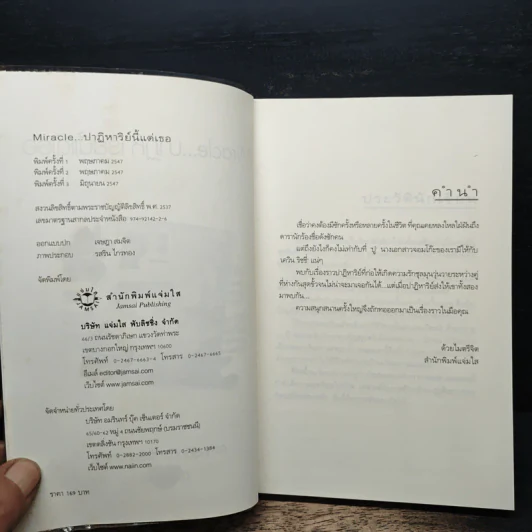 Miracle...ปาฏิหาริย์นี้แด่เธอ
พิมพ์ครั้งที่ 1 พฤษภาคม 2547
พิมพ์ครั้งที่ 2 พฤษภาคม 2547
พิมพ์ครั้งที่ 3 มิถุนายน 2547
สงวนลิขสิทธิ์ตามพระราชบัญญัติลิขสิทธิ์ พ.ศ. 2537
เลขมาตรฐานสากลประจำหนังสือ 974-92142-2-6
ออกแบบปก เจษฎา สมจิต
ภาพประกอบ รสริน ไกรทอง
จัดพิมพ์โดย
สำนักพิมพ์แจ่มใส
Jamsai Publishing
บริษัท แจ่มใส พับลิชชิ่ง จำกัด
ถนนรัชดาภิเษก แขวงวัดท่าพระ
เขตบางกอกใหญ่ กรุงเทพฯ 10600
โทรศัพท์ 0-2467-6663-4 โทรสาร 0-2467-6665
อีเมล์ editor@jamsai.com
เว็บไซต์ www.jamsai.com
จัดจำหน่ายทั่วประเทศโดย
บริษัท อมรินทร์ บุ๊ค เซ็นเตอร์ จำกัด
65/60-62 หมู่ 4 ถนนชัยพฤกษ์ (บรมราชชนนี)
เขตตลิ่งชัน กรุงเทพฯ 10170
โทรศัพท์ 0-2882-2000 โทรสาร 0-2434-1384
เว็บไซต์ www.naiin.com
ราคา 169 บาท
คำนำ
เชื่อว่าคงต้องมีซักครั้งหรือหลายครั้งในชีวิต ที่คุณเคยหลงใหลใฝ่ฝันถึง
ดารานักร้องชื่อดังซักคน
แต่ถึงยังไงก็คงไม่เท่ากับที่ ปู นางเอกสาวจอมโก๊ะของเรามีให้กับ
เควิน ริชชี่ แน่ๆ
พบกับเรื่องราวปาฏิหาริย์ที่ก่อให้เกิดความรักชุลมุนวุ่นวายระหว่างคู่
ที่ห่างกันสุดขั้วจนไม่น่าจะมาเจอกันได้...แต่เมื่อปาฏิหาริย์ส่งให้เขาทั้งสอง
มาพบกัน...
ความสนุกสนานครั้งใหญ่จึงถักทอออกมาเป็นเรื่องราวในมือคุณ
ด้วยไมตรีจิต
สำนักพิมพ์แจ่มใส